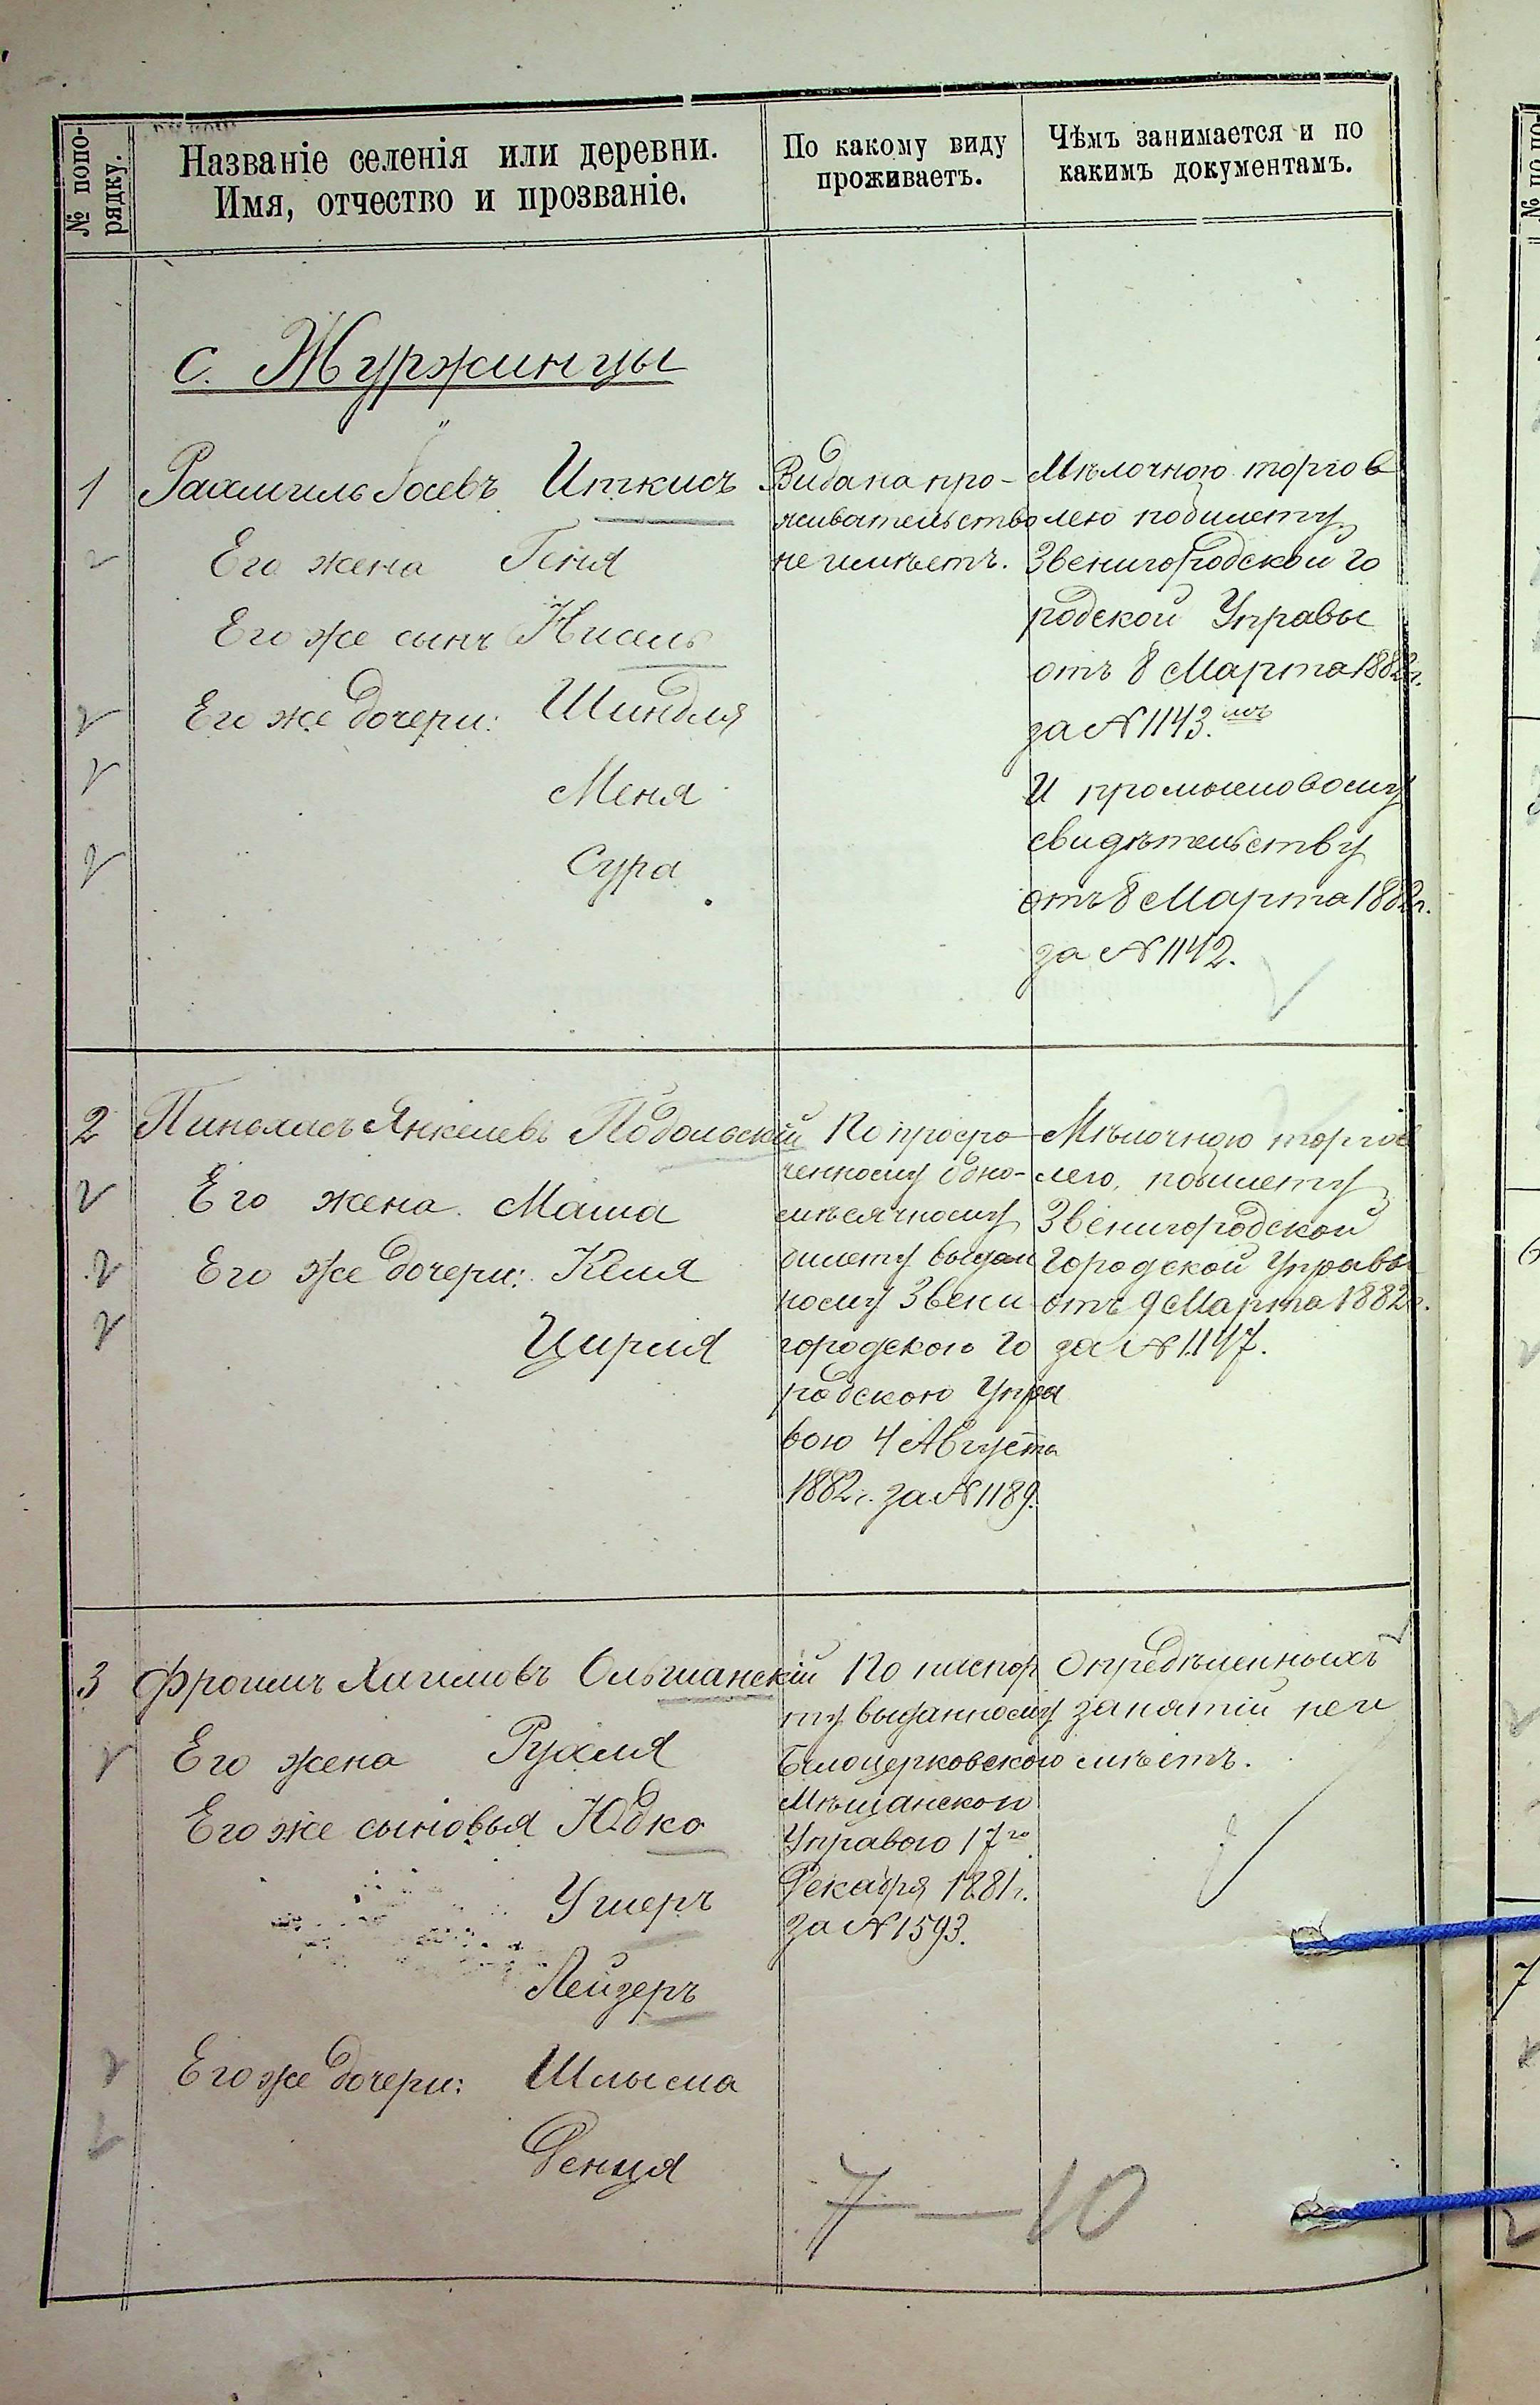 № попо-
рядку.
Названіе селенія или деревни.
Имя, отчество и прозваніе.
По какому виду
проживаетъ.
Чѣмъ занимается и по
какимъ документамъ.
с. Журжинцы
1 Рахмиль Іосевъ Иткисъ
Его жена Геня
Его же сынъ Нисель
Его же дочери: Шиндля
Меня
Сура
Вида на про-
живательство
не имѣетъ.
Мѣлочною торгов
лею по билету
Звенигородской Го
родской Управы
отъ 8 Марта 1882 г.
за № 1143.
И промысловому
свидѣтельству
отъ 8 Марта 1882 г.
за № 1142.
2 Пинхасъ Янкелевъ Подольскій
Его жена Маша
Его же дочери: Келя
Цирля
По просро-
ченному одно-
мѣсячному
билету выдан
ному Звени
городскою Го
родскою Упра
вою 4 Августа
1882 г. за № 1189.
Мѣлочною торгов
лею, по билету
Звенигородской
Городской Управы
отъ 9 Марта 1882 г.
за № 1147.
3 Фроимъ Хаимовъ Ольшанскій
Его жена Рухля
Его же сыновья Юдко
Ушеръ
Лейзеръ
Его же дочери: Шлыма
Генця
По паспор
ту выданному
Бѣлоцерковскою
Мѣщанскою
Управою 17го
Декабря 1881 г.
За № 1593.
Опредѣленныхъ
занятій не и
мѣетъ.
7 — 10